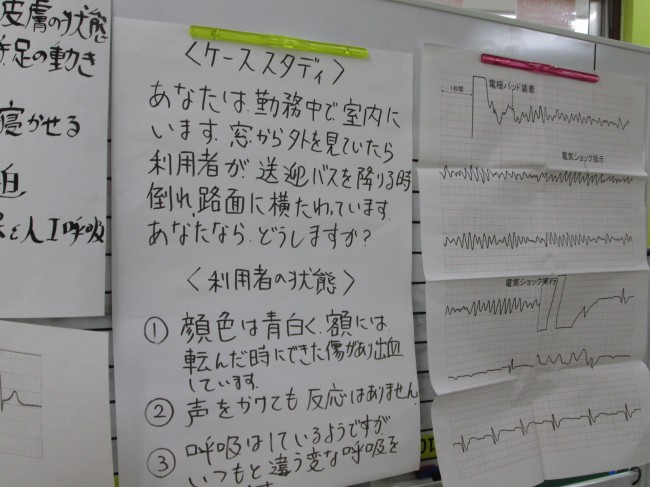 皮膚の状態
手足の動き
寝かせる
迫
と人工呼吸
〈ケーススタディ〉
あなたは、勤務中で室内に
います。窓から外を見ていたら
利用者が、送迎バスを降りる時
倒れ、路面に横たわっています。
あなたなら、どうしますか?
〈利用者の状態〉
① 顔色は青白く、額には
転んだ時にできた傷があり出血
しています。
② 声をかけても反応はありません
③ 呼吸はしているようですが
いつもと違う変な呼吸を
1秒間
電極パッド装着
電気ショック指示
電気ショック実行